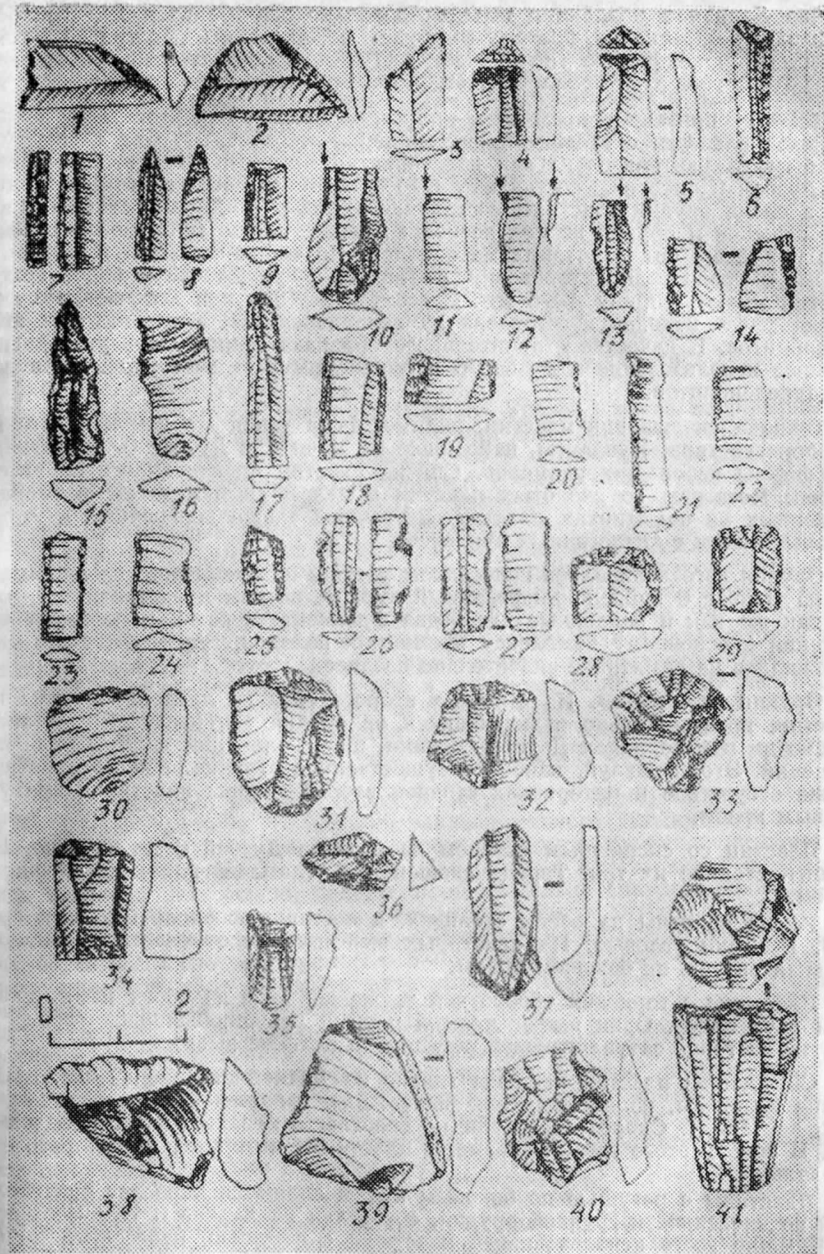 1 2 3 4 5 6
7 8 9 10 11 12 13 14
15 16 17 18 19 20 21 22
23 24 25 26 27 28 29
30 31 32 33
34 35 36 37
0 2
38 39 40 41